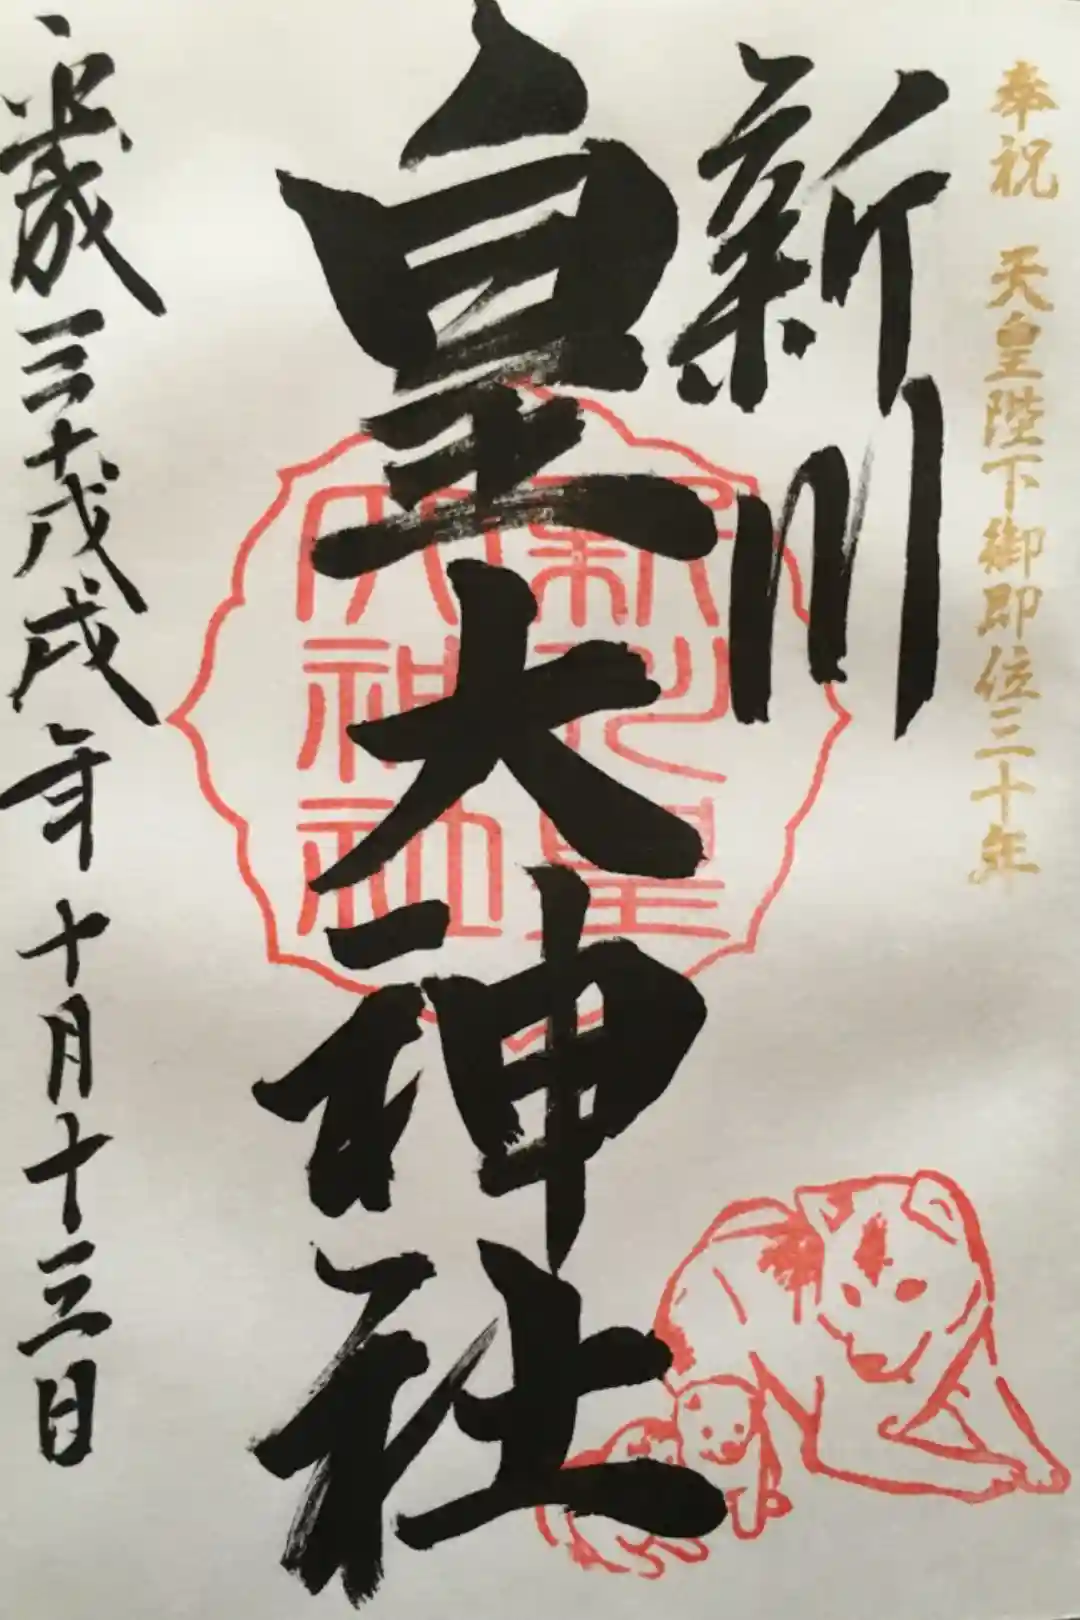 奉祝 天皇陛下御即位三十年
新川
皇大神社
平成三十戊戌年十月十三日
新川皇
大神社